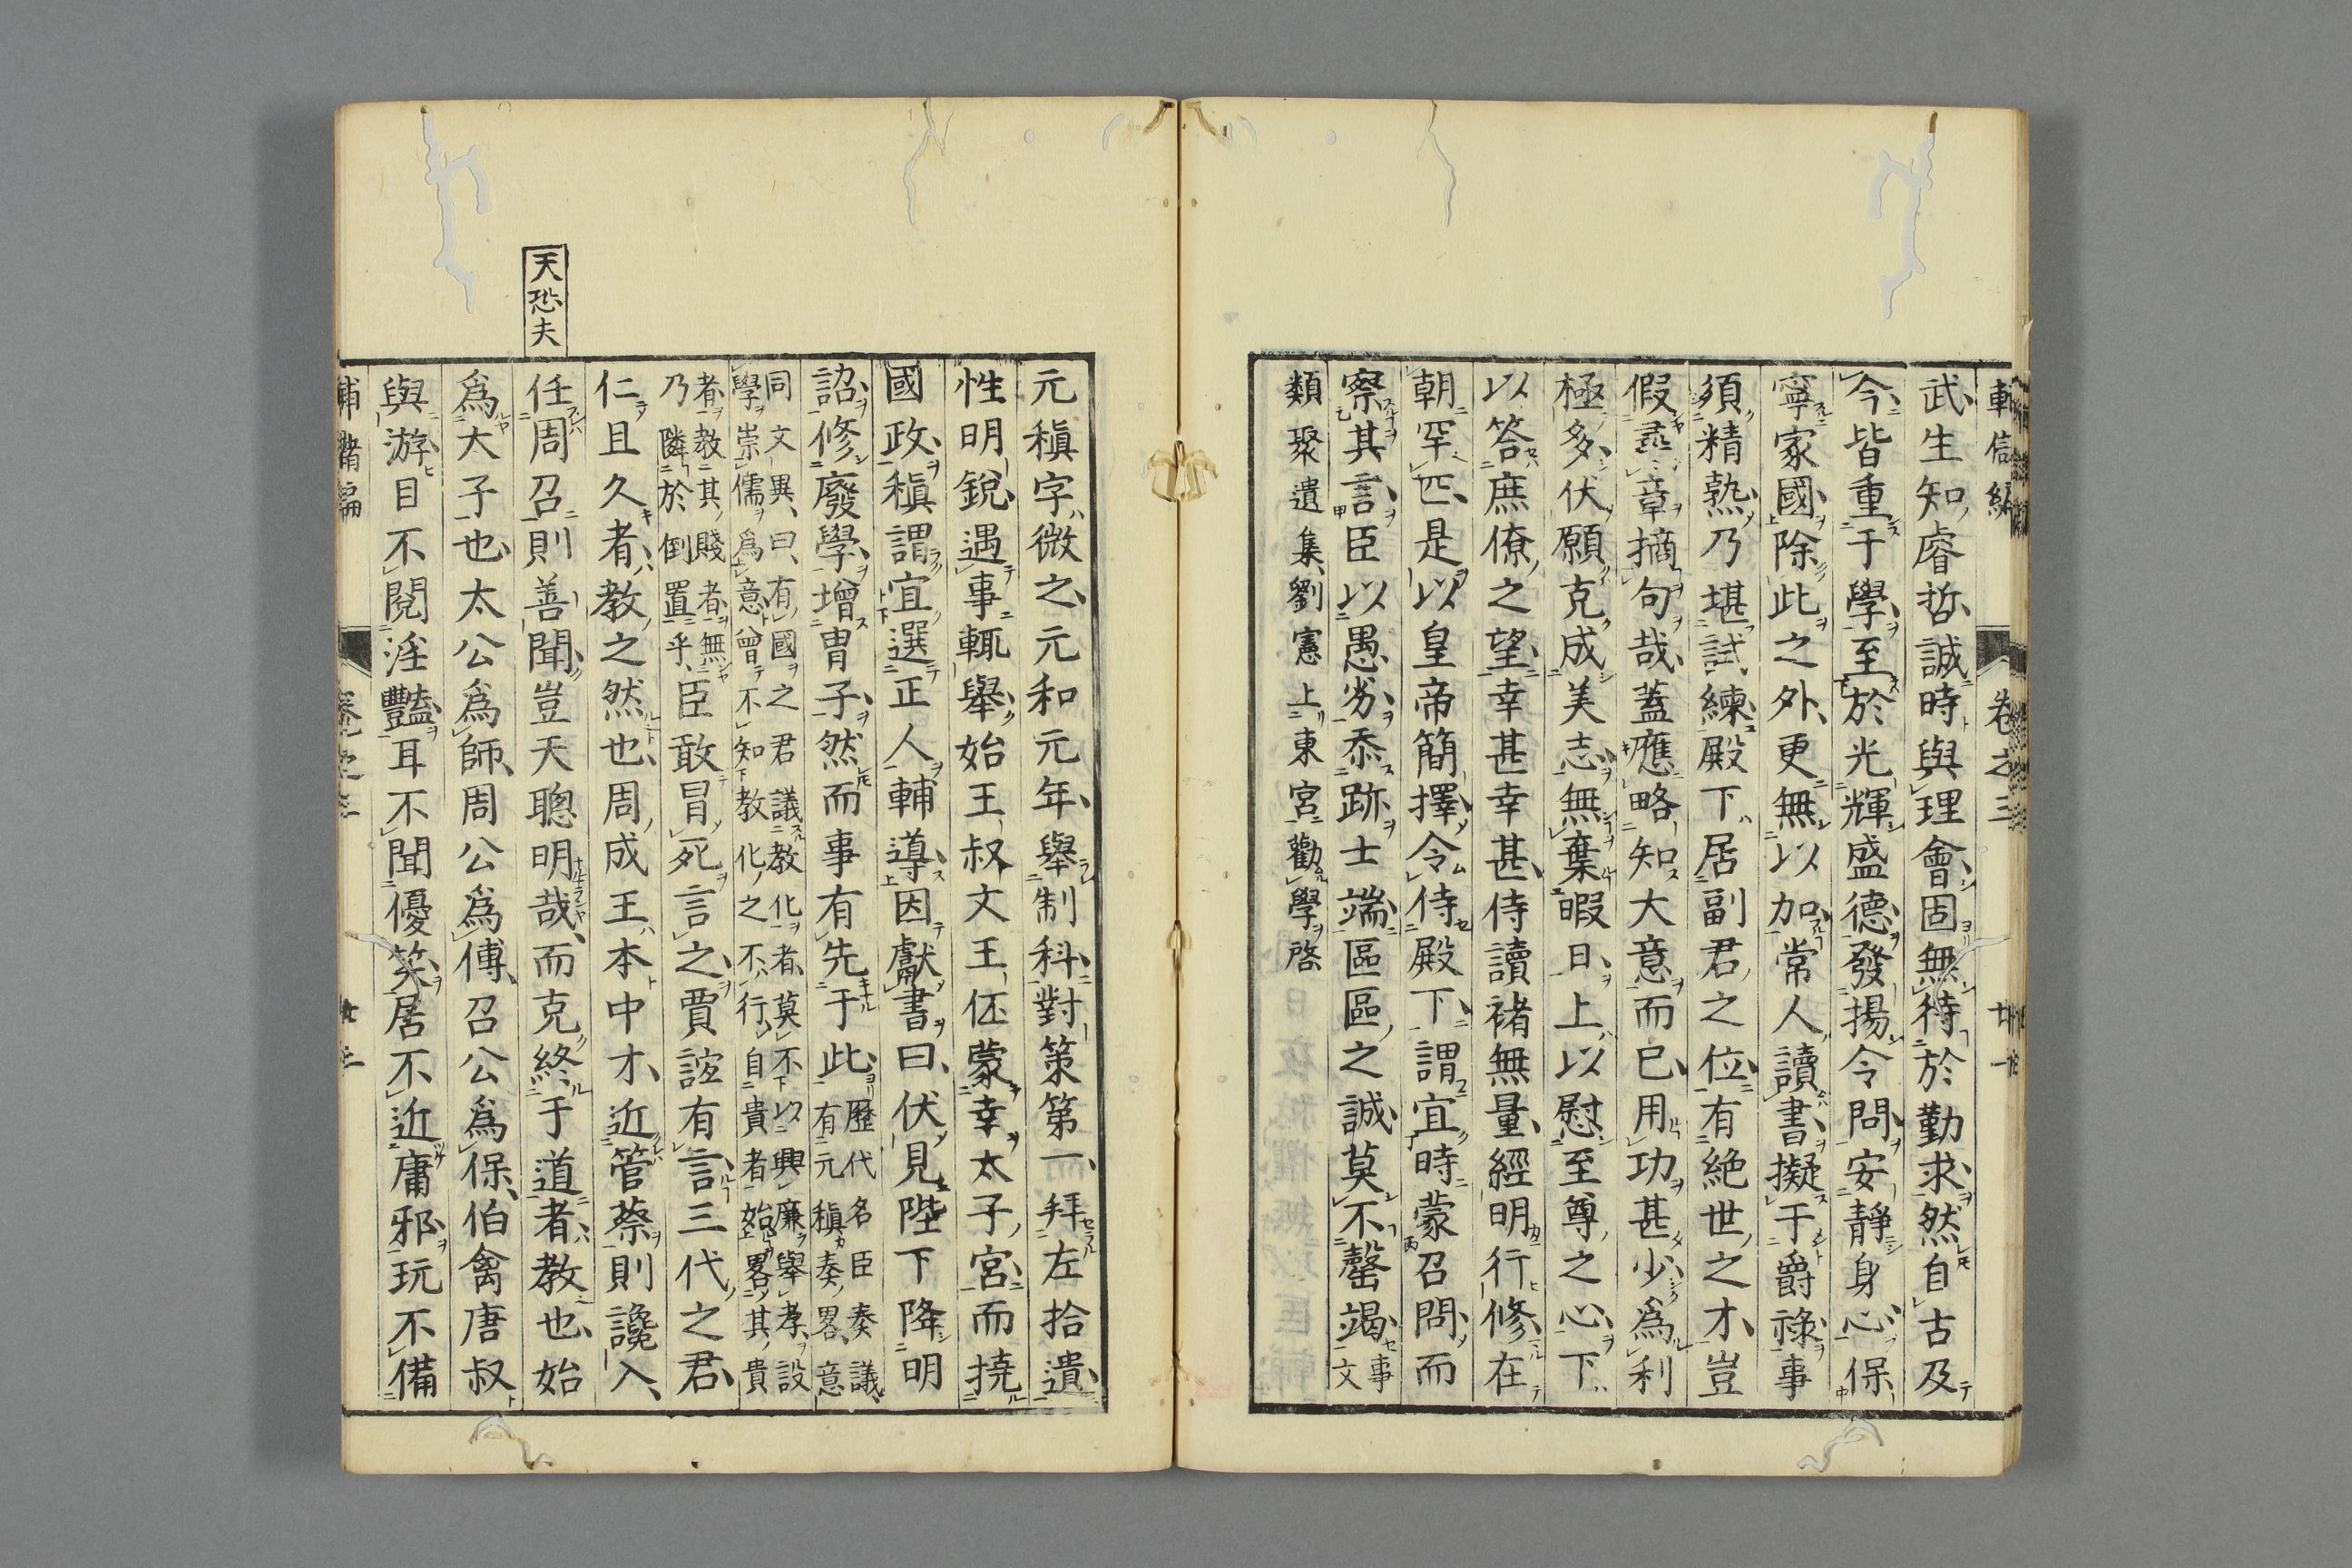 卷之三
武生知睿哲誠時與理會固無待於勤求然自古及
今皆重于學至於光輝盛德發揚令問安靜身心保
寧家國除此之外更無以加常人讀書擬于爵祿事
須精熟乃堪試練殿下居副君之位有絶世之才豈
假尋章摘句哉蓋應略知大意而已用功甚少爲利
極多伏願克成美志無棄暇日上以慰至尊之心下
以答庶僚之望幸甚幸甚侍讀褚無量經明行修在
朝罕匹是以皇帝簡擇令侍殿下謂宜時蒙召問而
察其言臣以愚劣忝跡士端區區之誠莫不罄竭事文
類聚遺集劉憲上東宮勸學啓
元稹字微之元和元年舉制科對策第一拜左拾遺
性明銳遇事輒舉始王叔文王伾蒙幸太子宮而撓
國政稹謂宜選正人輔導因獻書曰伏見陛下降明
詔修廢學增胄子然而事有先于此歷代名臣奏議有元稹奏畧意
同文異曰有國之君議教化者莫不以興廉舉孝設
學崇儒爲意曾不知教化之不行自貴者始畧其貴
者教其賤者無
乃隣於倒置乎臣敢冒死言之賈誼有言三代之君
仁且久者教之然也周成王本中才近管蔡則讒入
任周召則善聞豈天聰明哉而克終于道者教也始
天恐夫
爲大子也太公爲師周公爲傅召公爲保伯禽唐叔
與游目不閱淫豔耳不聞優笑居不近庸邪玩不備